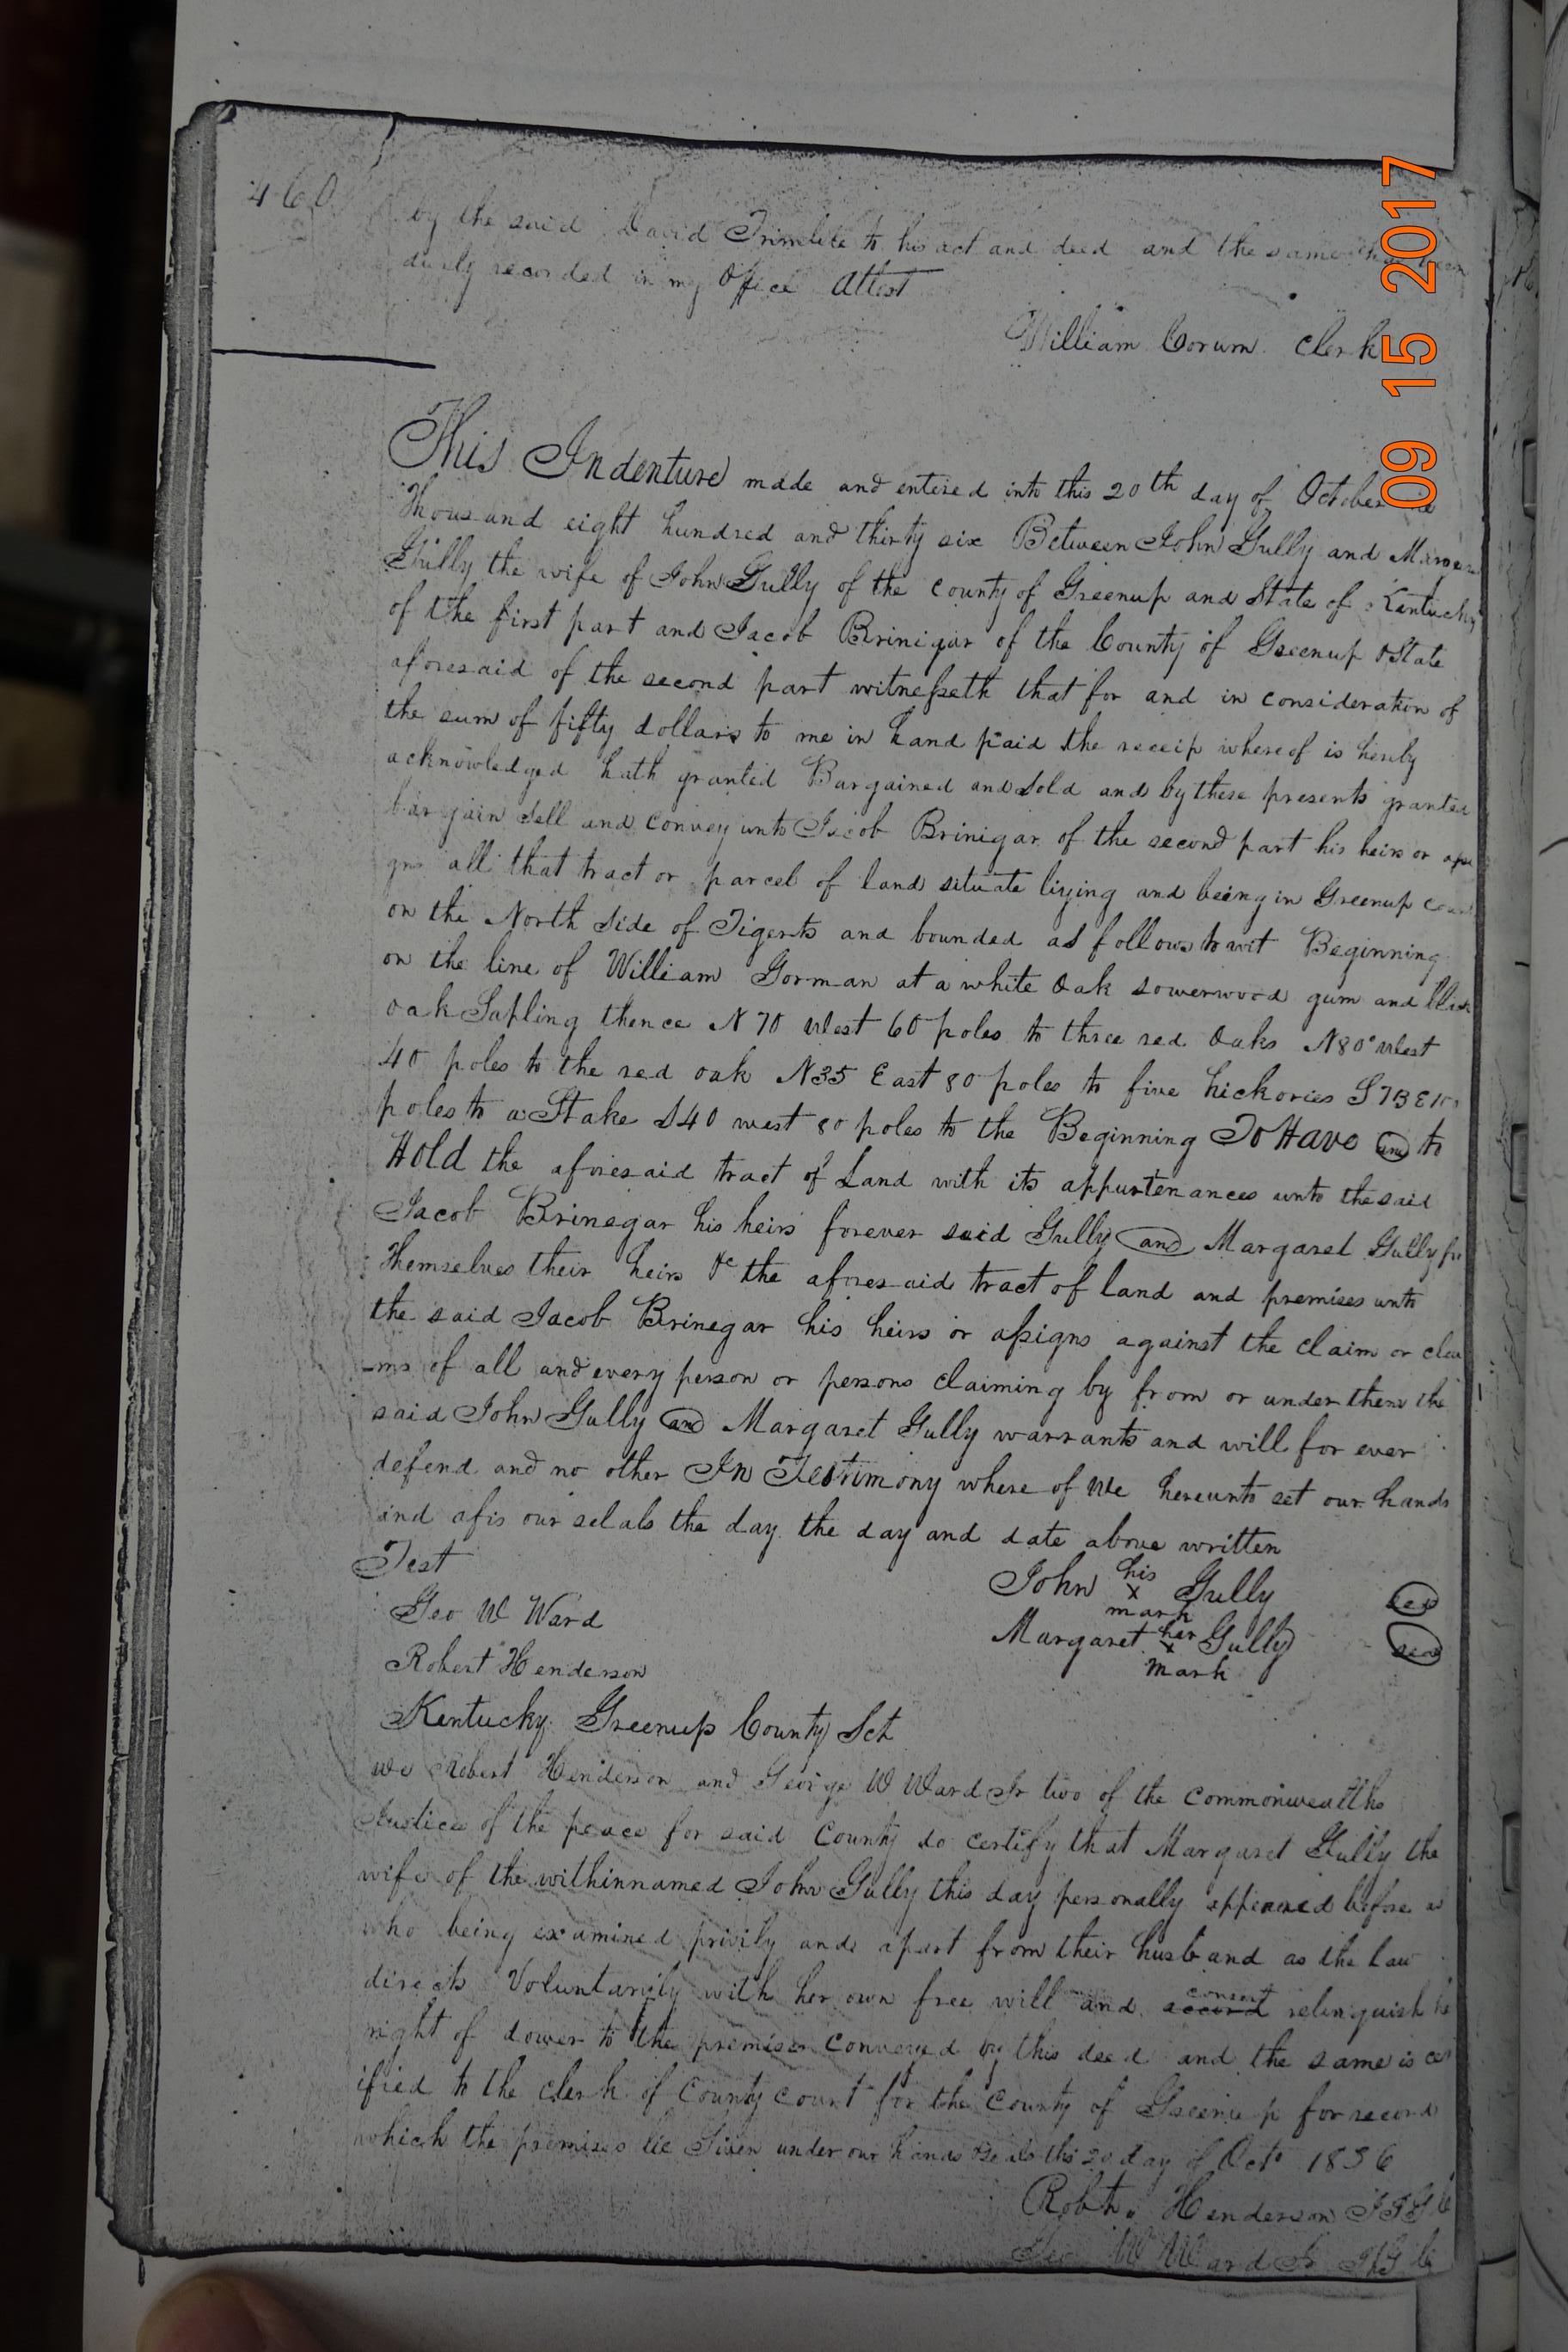 460
by the said David Trimble to his act and deed and the same has been
duly recorded in my Office Attest
William Corum Clerk
09 15 2017
This Indenture made and entered into this 20th day of October
Thousand eight hundred and thirty six Between John Gully and
Gully the wife of John Gully of the County of Greenup and State of Kentucky
of the first part and Jacob Brinigar of the County of Greenup & State
aforesaid of the second part witnesseth that for and in consideration of
the sum of fifty dollars to me in hand paid the receip whereof is hereby
acknowledged hath granted Bargained and Sold and by these presents
bargain Sell and convey unto Jacob Brinigar of the second part his heirs or assi
gns all that tract or parcel of land situate liying and being in Greenup
on the North Side of Tigerts and bounded as follows to wit Beginning
on the line of William Gorman at a white Oak sowerwood gum and
oak Sapling thence N 70 West 60 poles to three red Oaks N80° West
40 poles to the red oak N35 East 80 poles to five hickories
poles to a Stake S40 west 80 poles to the Beginning To Have and to
Hold the aforesaid tract of Land with its appurtenances unto the said
Jacob Brinegar his heirs forever said Gully and Margaret Gully for
Themselves their heirs &c the aforesaid tract of land and premises unto
the said Jacob Brinegar his heirs or assigns against the claim or clai
-ms of all and every person or persons claiming by from or under them the
said John Gully and Margaret Gully warrants and will for ever
defend and no other In Testimony where of We hereunto set our hands
and afis our selals the day the day and date above written
Test
John his x mark Gully seal
Geo W Ward
Margaret her x mark Gully seal
Robert Henderson
Kentucky Greenup County Sct
We Robert Henderson and George W Ward Jr two of the Commonwealths
Justices of the peace for said County do certify that Margaret Gully the
wife of the withinnamed John Gully this day personally appeared before
who being examined privily and apart from their husband as the law
directs Voluntarily with her own free will and accord consent relinquish
right of dower to the premises conveyed by this deed and the same is cer
ified to the clerk of County court for the County of Greenup for record
which the premises lie Given under our hands & seals this 20 day of Oct 1836
Robt. Henderson
Geo W Ward Jr